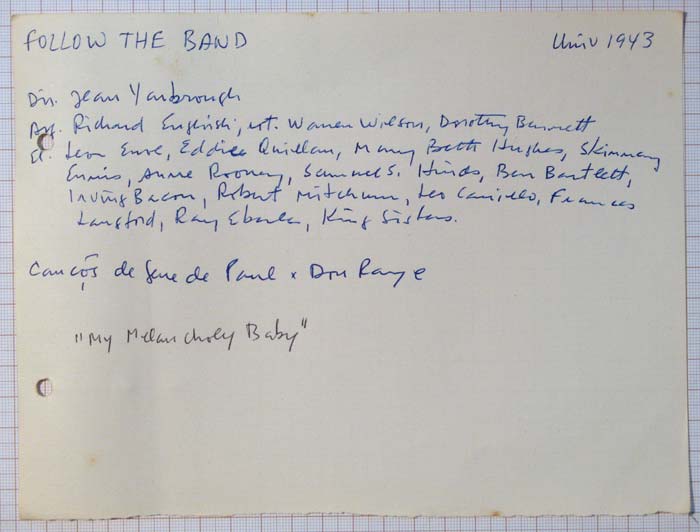 FOLLOW THE BAND Univ 1943
Dir. Jean Yarbrough
Arg. Richard English; rot. Warren Wilson, Dorothy Bennett
El. Leon Errol, Eddie Quillan, Mary Beth Hughes, Skinnay
Ennis, Anne Rooney, Samuel S. Hinds, Ben Bartlett,
Irving Bacon, Robert Mitchum, Leo Carrillo, Frances
Langford, Ray Eberle, King Sisters.
de Gene de Paul x Don Raye
"My Melancholy Baby"